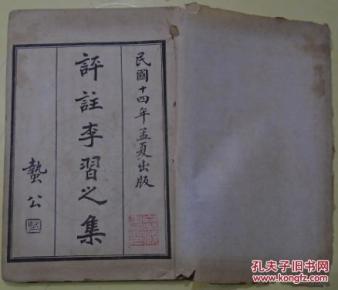 民國十四年孟夏出版
評註李習之集
蟄公
孔夫子旧书网